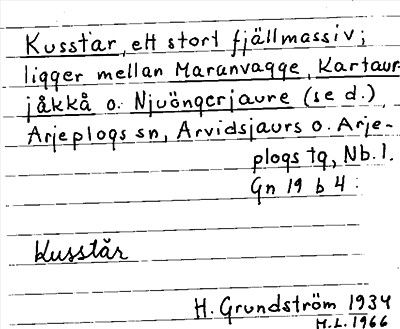 Kusstar, ett stort fjällmassiv;
ligger mellan Maranvagge, Kartaur
jåkkå o. Njuöngerjaure (se d.)
Arjeplogs sn, Arvidsjaurs o. Arje-
plogs tg, Nb. l.
Gn 19 b 4:
Kusstår
H. Grundström 1934
H.L. 1966